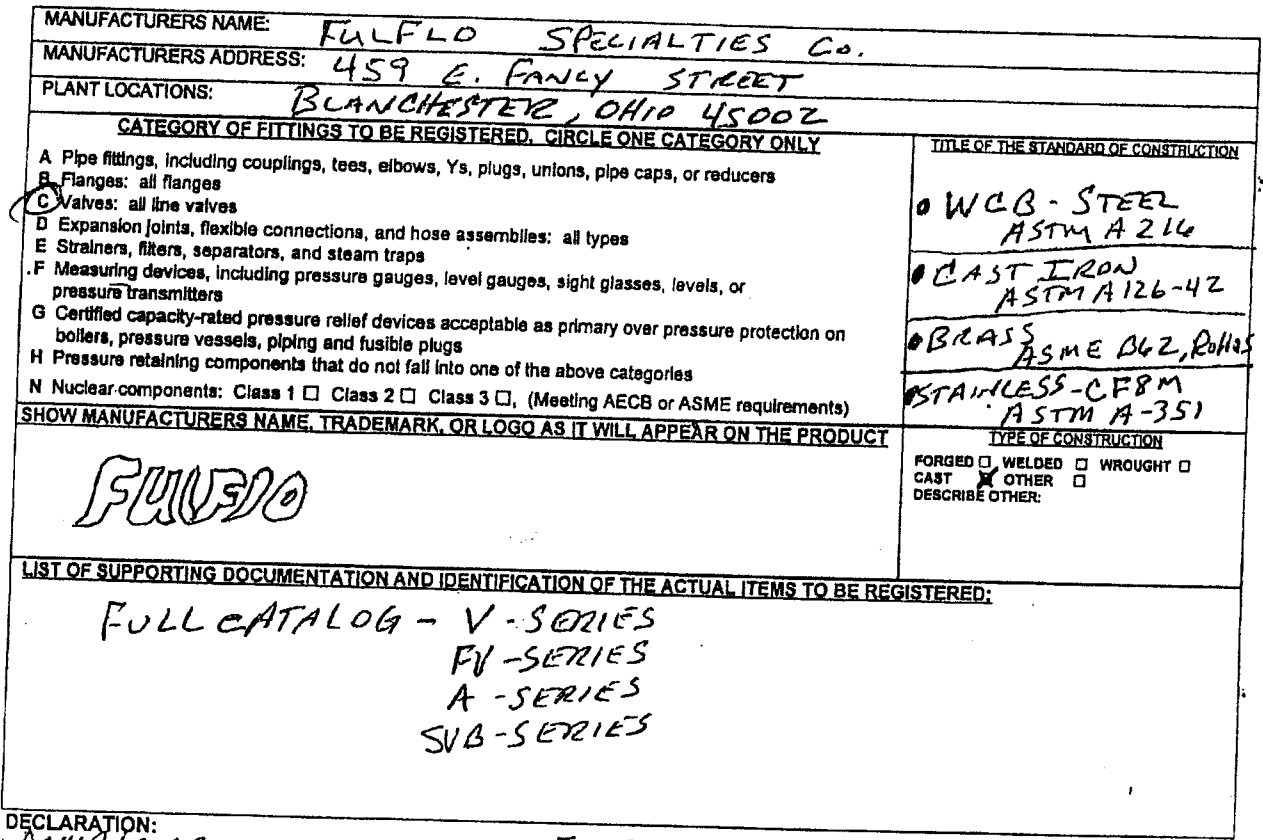 MANUFACTURERS NAME: FULFLO SPECIALTIES Co.
MANUFACTURERS ADDRESS: 459 E. FANCY STREET
PLANT LOCATIONS: BLANCHESTER, OHIO 45002
CATEGORY OF FITTINGS TO BE REGISTERED. CIRCLE ONE CATEGORY ONLY
A Pipe fittings, including couplings, tees, elbows, Ys, plugs, unions, pipe caps, or reducers
B Flanges: all flanges
C Valves: all line valves
D Expansion joints, flexible connections, and hose assemblies: all types
E Strainers, filters, separators, and steam traps
F Measuring devices, including pressure gauges, level gauges, sight glasses, levels, or
pressure transmitters
G Certified capacity-rated pressure relief devices acceptable as primary over pressure protection on
boilers, pressure vessels, piping and fusible plugs
H Pressure retaining components that do not fall into one of the above categories
N Nuclear components: Class 1 ☐ Class 2 ☐ Class 3 ☐, (Meeting AECB or ASME requirements)
TITLE OF THE STANDARD OF CONSTRUCTION
• WCB - STEEL
ASTM A 216
• CAST IRON
ASTM A126-42
• BRASS
ASME B62,
• STAINLESS-CF8M
ASTM A-351
SHOW MANUFACTURERS NAME, TRADEMARK, OR LOGO AS IT WILL APPEAR ON THE PRODUCT
FULFLO
TYPE OF CONSTRUCTION
FORGED ☐ WELDED ☐ WROUGHT ☐
CAST ☒ OTHER ☐
DESCRIBE OTHER:
LIST OF SUPPORTING DOCUMENTATION AND IDENTIFICATION OF THE ACTUAL ITEMS TO BE REGISTERED:
FULL CATALOG - V-SERIES
FV-SERIES
A-SERIES
SVB-SERIES
DECLARATION: